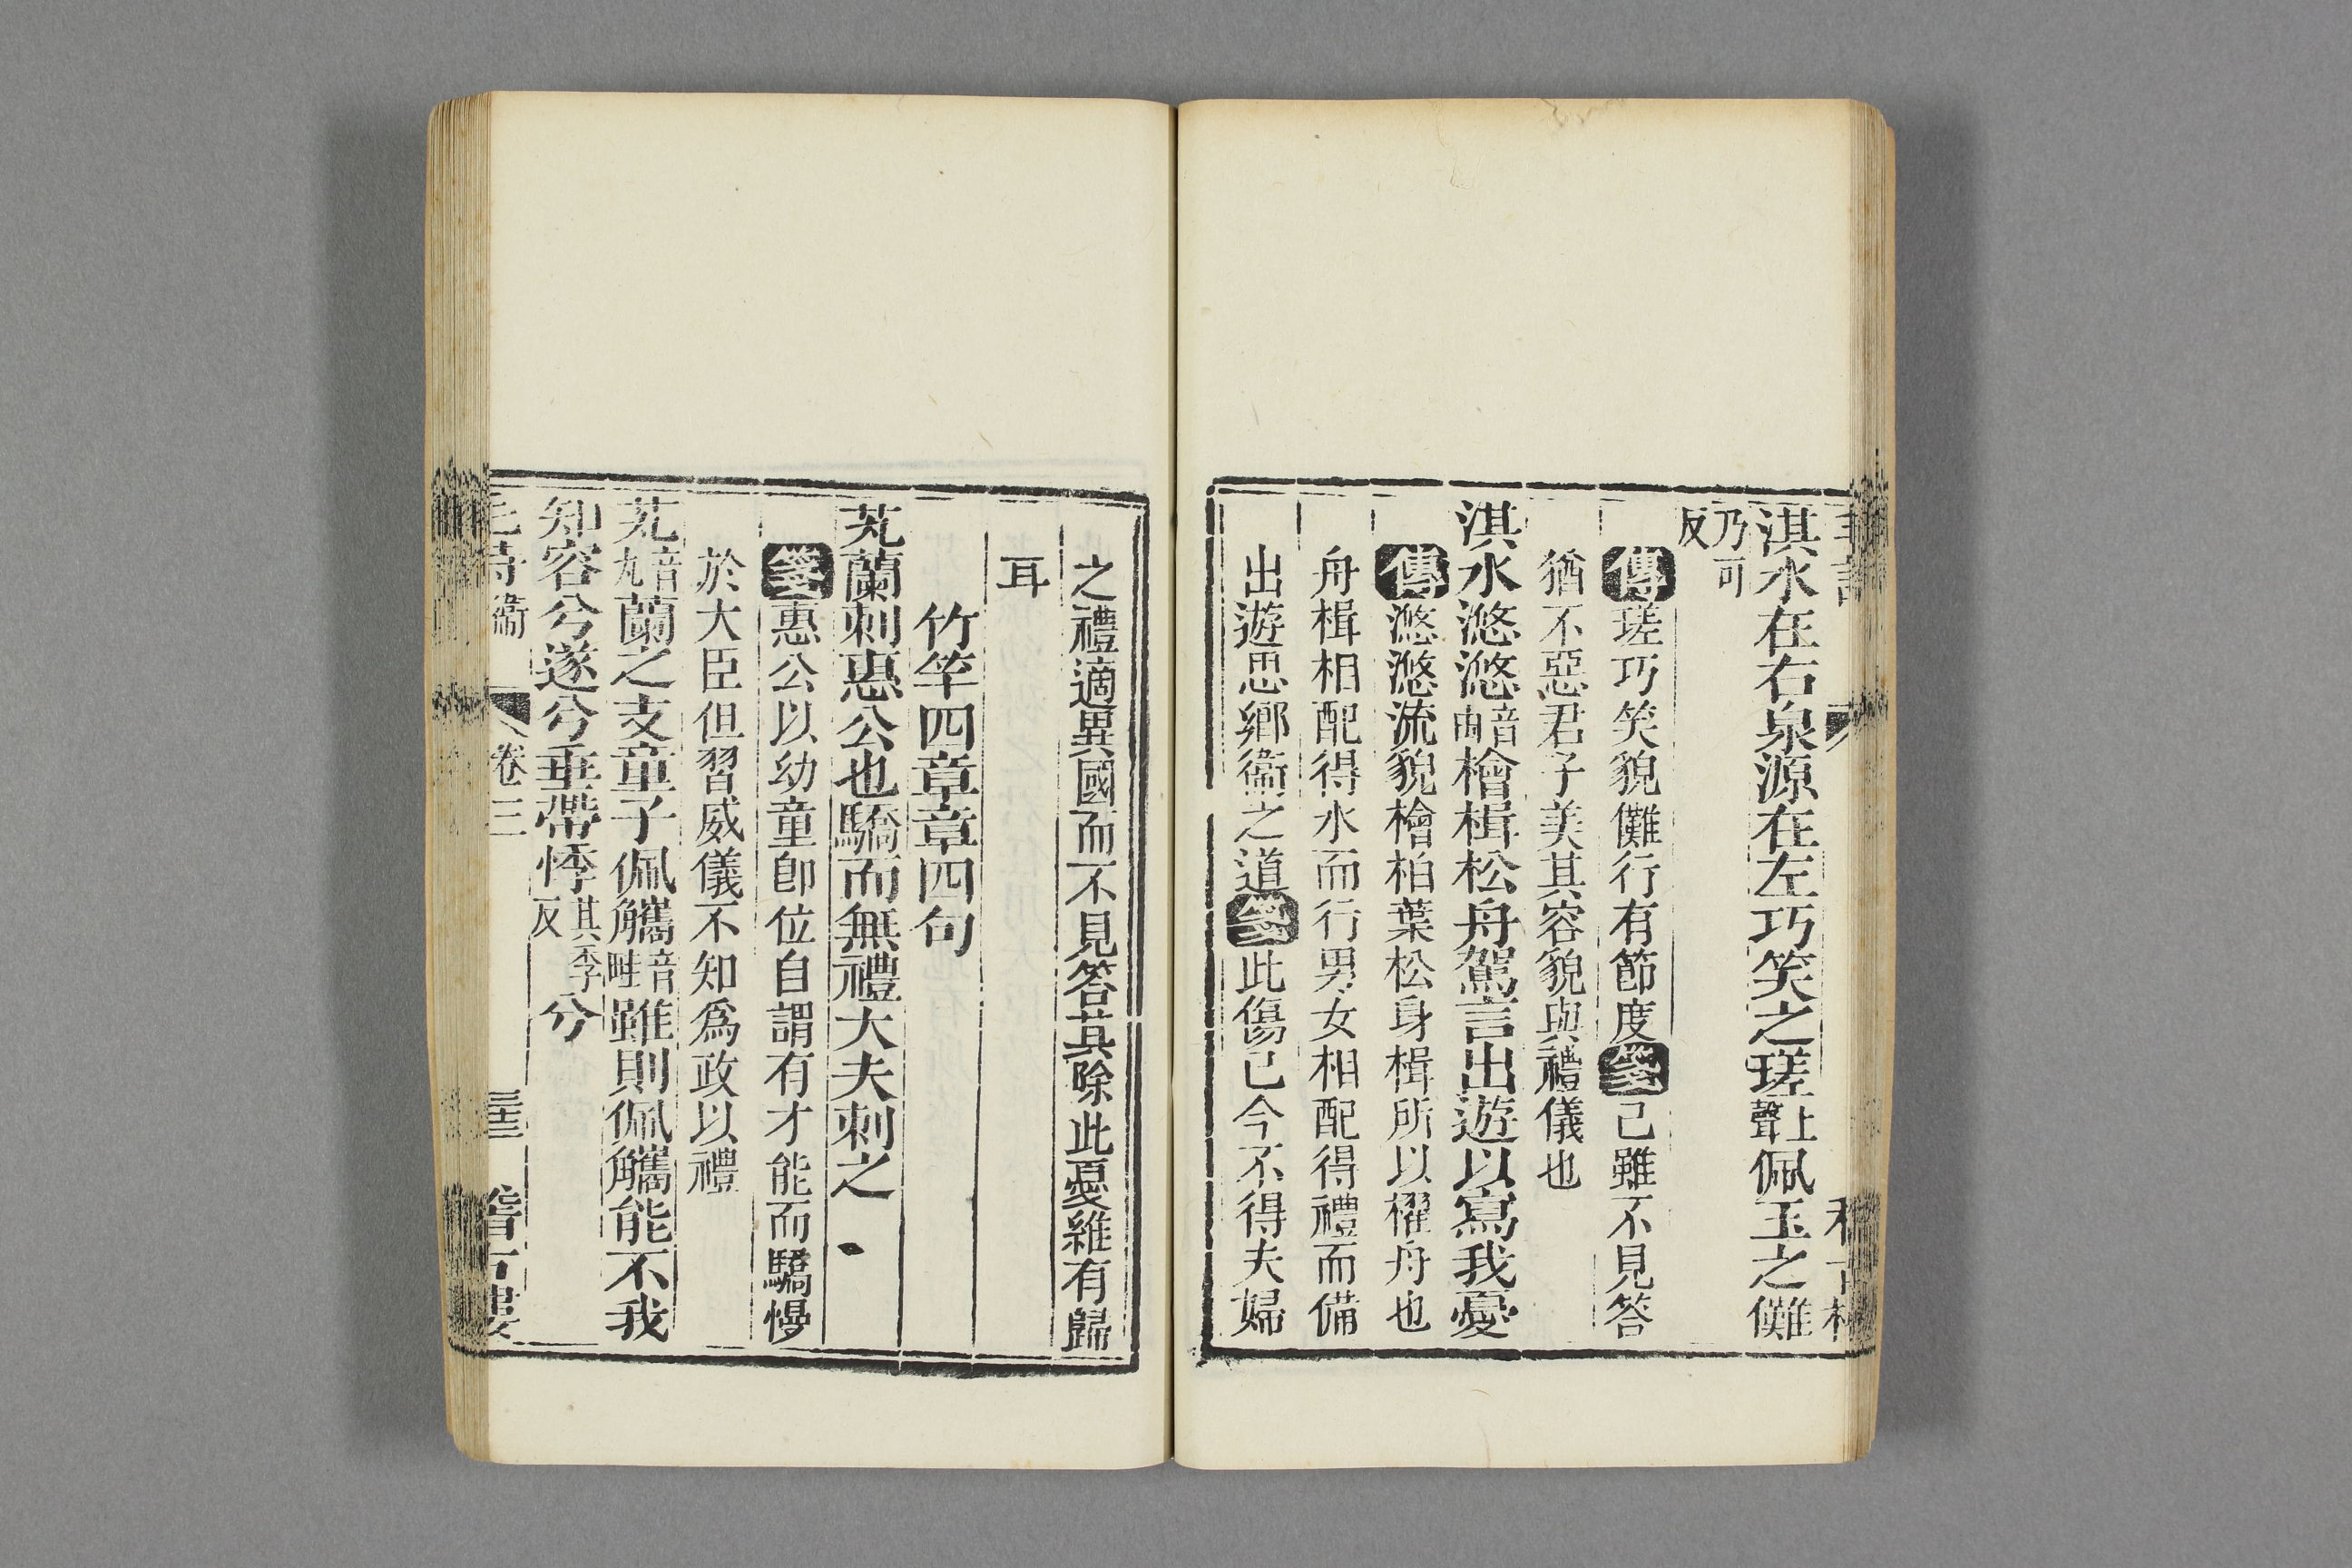 淇水在右泉源在左巧笑之瑳上聲佩玉之儺
乃可反
傳瑳巧笑貌儺行有節度箋己雖不見答
猶不惡君子美其容貌與禮儀也
淇水滺滺音由檜楫松舟駕言出遊以寫我憂
傳滺滺流貌檜柏葉松身楫所以櫂舟也
舟楫相配得水而行男女相配得禮而備
出遊思鄉衞之道箋此傷己今不得夫婦
之禮適異國而不見答其除此憂維有歸
耳
竹竿四章章四句
芄蘭刺惠公也驕而無禮大夫刺之
箋惠公以幼童卽位自謂有才能而驕慢
於大臣但習威儀不知爲政以禮
芄音丸蘭之支童子佩觿音畦雖則佩觿能不我
知容兮遂兮垂帶悸其季反兮
毛詩 衞 卷三